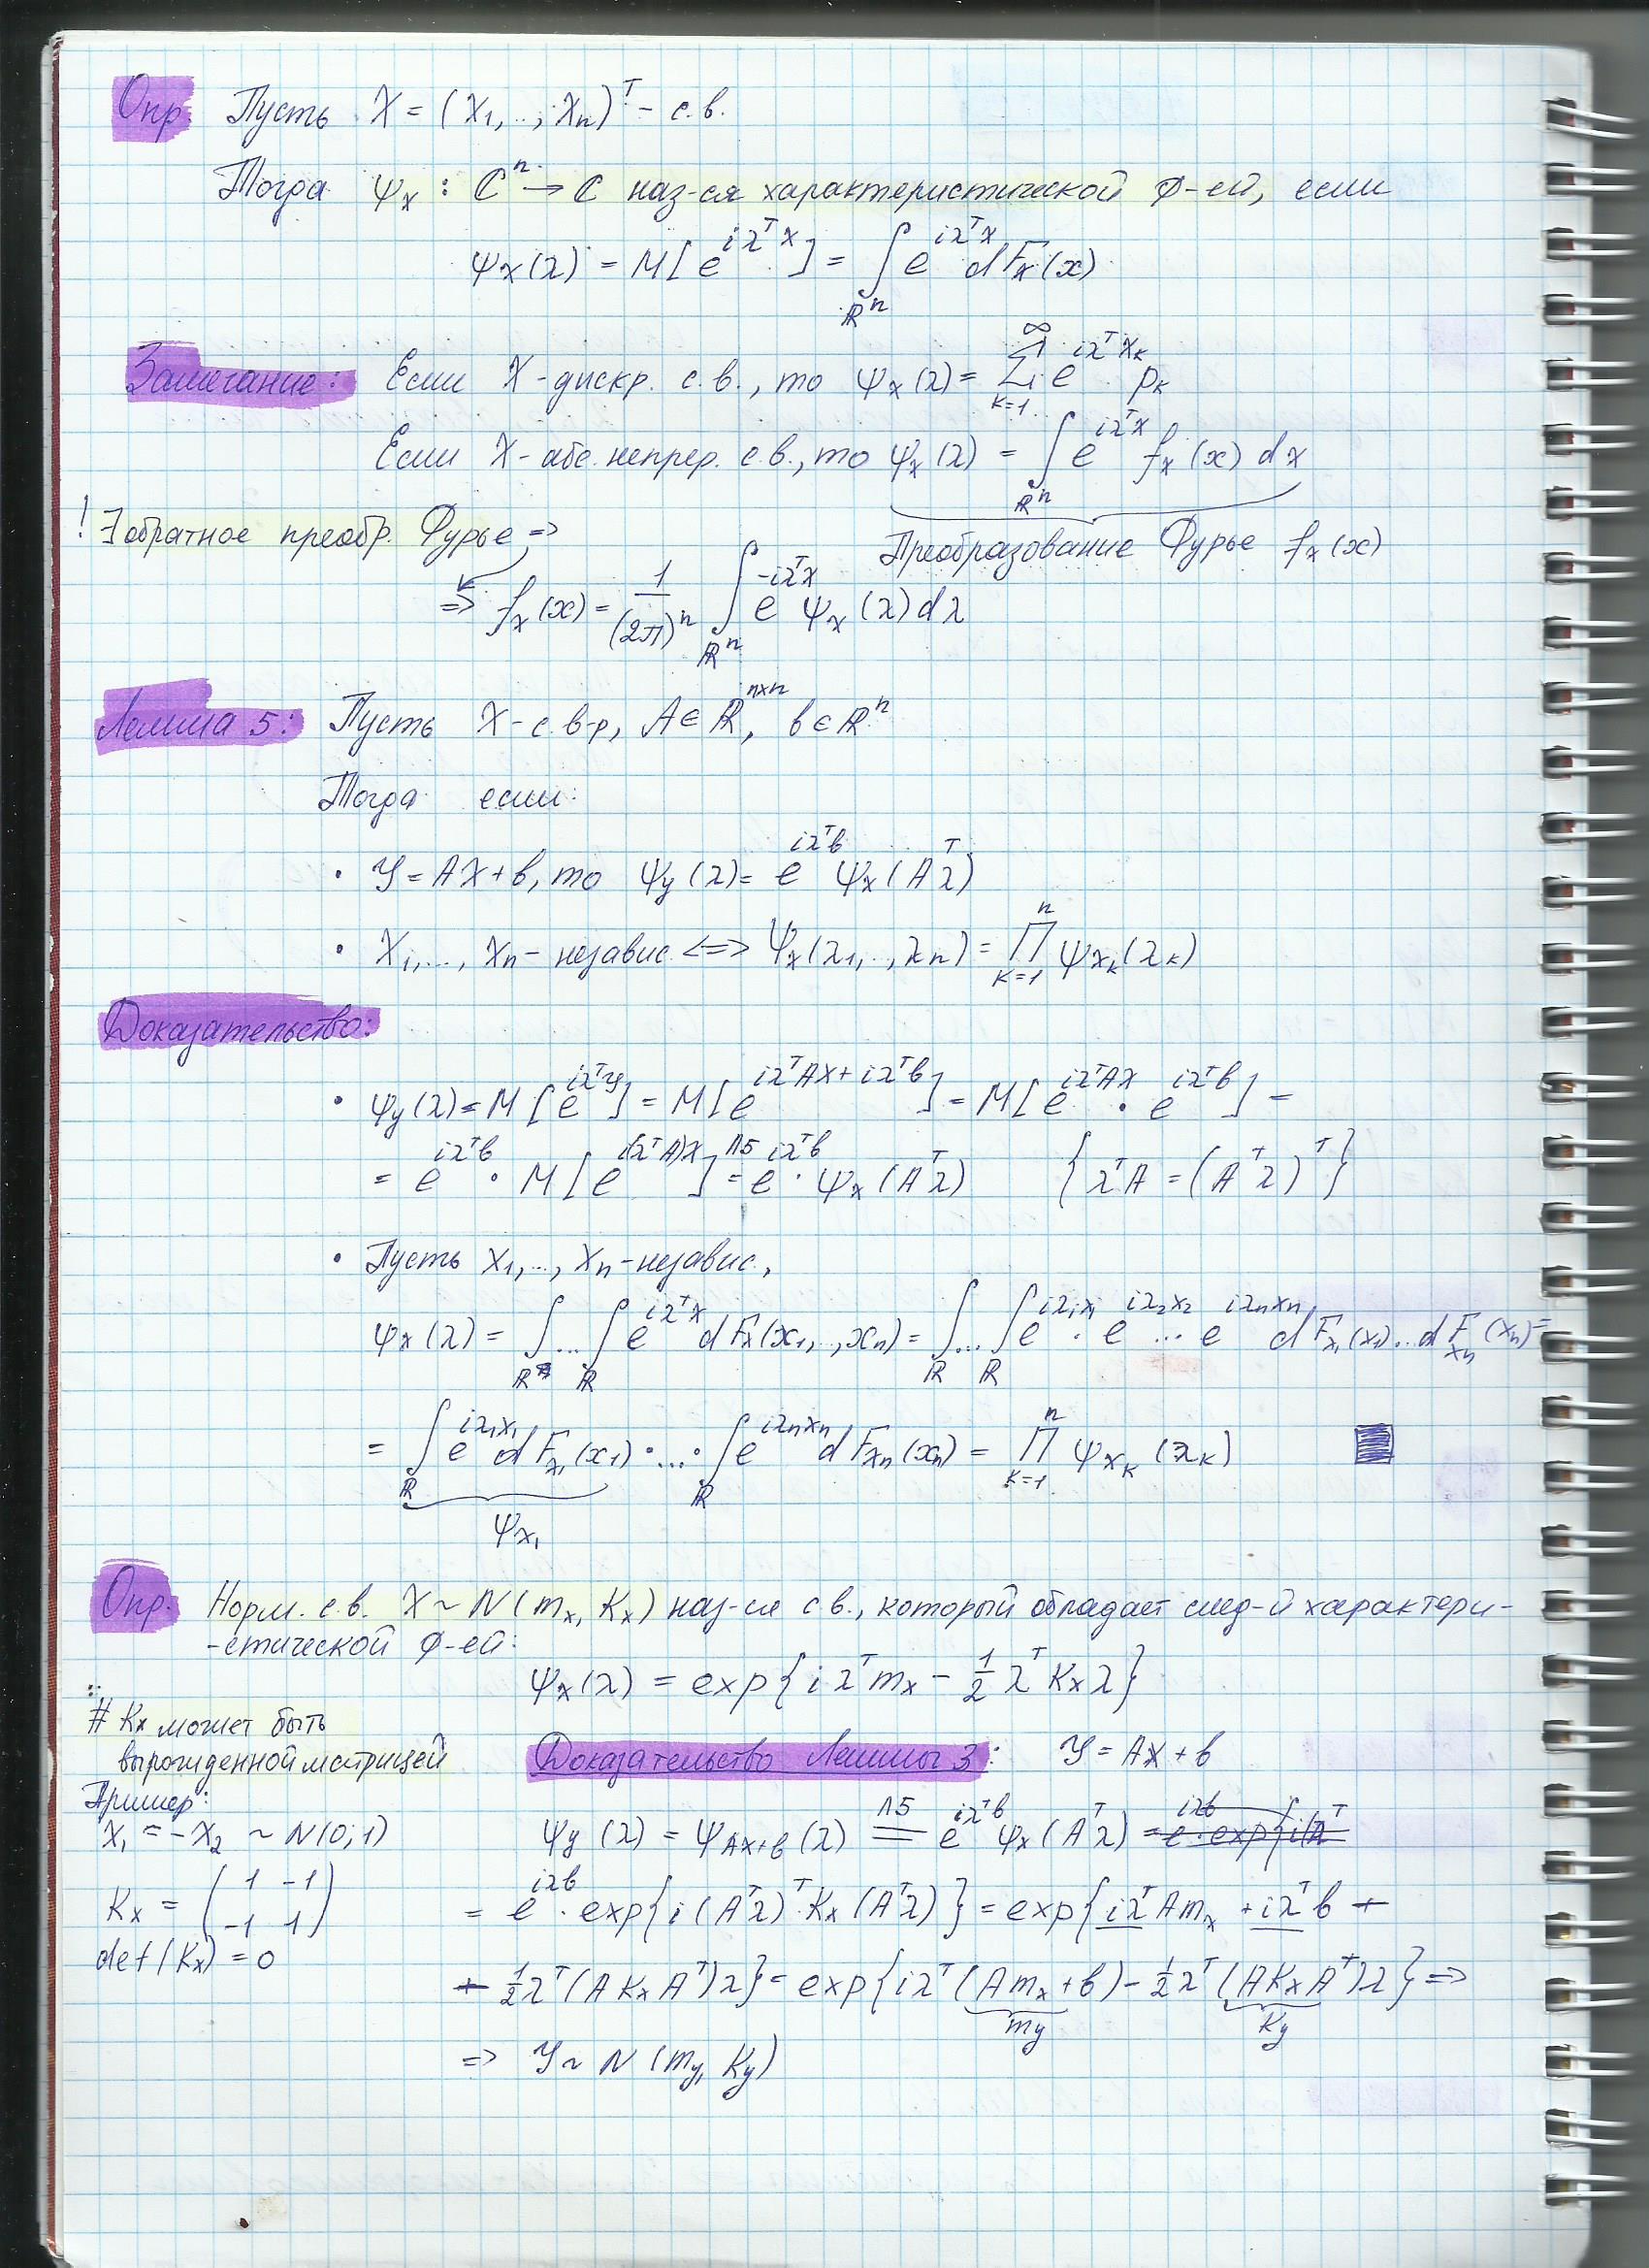 Опр. Пусть X = (X₁,..., Xₙ)ᵀ - с.в.
Тогда ψₓ : ℂⁿ → ℂ наз-ся характеристической ф-ей, если
ψₓ(λ) = M[e^{iλᵀX}] = ∫_{ℝⁿ} e^{iλᵀx} dFₓ(x)
Замечание: Если X - дискр. с.в., то ψₓ(λ) = ∑_{k=1}^{∞} e^{iλᵀx_k} p_k
Если X - абс. непрер. с.в., то ψₓ(λ) = ∫_{ℝⁿ} e^{iλᵀx} fₓ(x) dx
! ∃ обратное преобр. Фурье =>
Преобразование Фурье fₓ(x)
=> fₓ(x) = 1/(2π)ⁿ ∫_{ℝⁿ} e^{-iλᵀx} ψₓ(λ) dλ
Лемма 5: Пусть X - с. в-р, A ∈ ℝ^{n×n}, b ∈ ℝⁿ
Тогда если:
• Y = AX + b, то ψ_y(λ) = e^{iλᵀb} ψₓ(Aᵀλ)
• X₁,..., Xₙ - независ. <=> ψₓ(λ₁,.., λₙ) = ∏_{k=1}^{n} ψ_{X_k}(λ_k)
Доказательство:
• ψ_y(λ) = M[e^{iλᵀY}] = M[e^{iλᵀAX + iλᵀb}] = M[e^{iλᵀAX} · e^{iλᵀb}] =
= e^{iλᵀb} · M[e^{i(λᵀA)X}] =^{Л5} e^{iλᵀb} · ψₓ(Aᵀλ) {λᵀA = (Aᵀλ)ᵀ}
• Пусть X₁,..., Xₙ - независ.,
ψₓ(λ) = ∫_ℝ ... ∫_ℝ e^{iλᵀx} dFₓ(x₁,.., xₙ) = ∫_ℝ ... ∫_ℝ e^{iλ₁x₁} · e^{iλ₂x₂} ... e^{iλₙxₙ} dF_{x₁}(x₁)...dF_{xₙ}(xₙ) =
= ∫_ℝ e^{iλ₁x₁} dF_{x₁}(x₁) · ... · ∫_ℝ e^{iλₙxₙ} dF_{xₙ}(xₙ) = ∏_{k=1}^{n} ψ_{X_k}(λ_k)
ψ_{X₁}
Опр. Норм. с.в. X ~ N(mₓ, Kₓ) наз-ся с.в., который обладает след-й характери-
-стической ф-ей:
ψₓ(λ) = exp{iλᵀmₓ - ½λᵀKₓλ}
# Kₓ может быть
вырожденной матрицей
Пример:
X₁ = -X₂ ~ N(0,1)
Kₓ = (1 -1
-1 1)
det(Kₓ) = 0
Доказательство Леммы 3: Y = AX + b
ψ_y(λ) = ψ_{AX+b}(λ) =^{Л5} e^{iλᵀb} ψₓ(Aᵀλ) =
= e^{iλb} · exp{i(Aᵀλ)ᵀKₓ(Aᵀλ)} = exp{iλᵀAmₓ + iλᵀb +
+ ½λᵀ(AKₓAᵀ)λ} = exp{iλᵀ(Amₓ + b) - ½λᵀ(AKₓAᵀ)λ} =>
m_y K_y
=> Y ~ N(m_y, K_y)